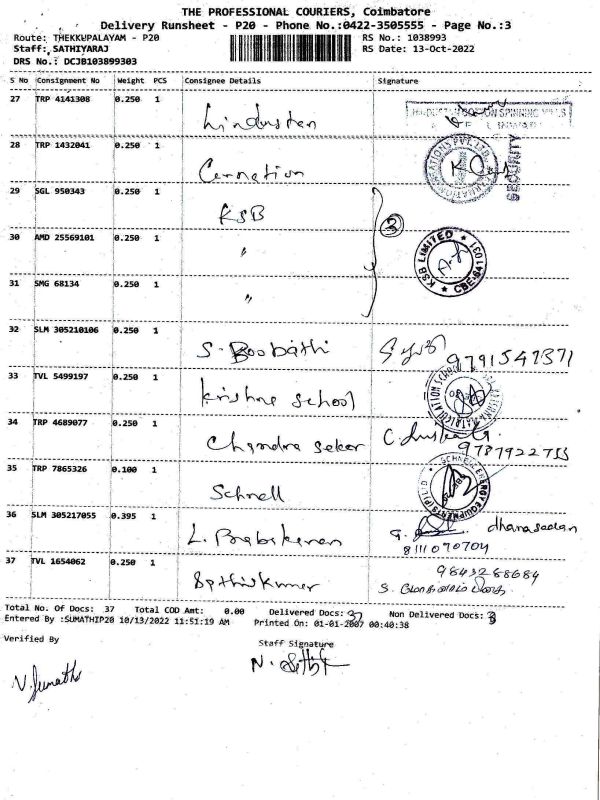 THE PROFESSIONAL COURIERS, Coimbatore
Delivery Runsheet - P20 - Phone No.:0422-3505555 - Page No.:3
Route: THEKKUPALAYAM - P20 RS No.: 1038993
Staff: SATHIYARAJ RS Date: 13-Oct-2022
DRS No.: DCJB103899303
S No Consignment No Weight PCS Consignee Details Signature
27 TRP 4141308 0.250 1 hindustan
28 TRP 1432041 0.250 1 Coronation
SECURITY
29 SGL 950343 0.250 1 KSB
3
30 AMD 25569101 0.250 1 "
KSB LIMITED
31 SMG 68134 0.250 1 "
32 SLM 305210106 0.250 1 S. Boobathi 9791541371
33 TVL 5499197 0.250 1 krishna school
34 TRP 4689077 0.250 1 Chandra sekar 9787922755
35 TRP 7865326 0.100 1 Schnell
36 SLM 305217055 0.395 1 L. Babakaran dhanaseelan
8111070704
37 TVL 1654062 0.250 1 Sathiskumar 9843288684
Total No. Of Docs: 37 Total COD Amt: 0.00 Delivered Docs: Non Delivered Docs:
Entered By :SUMATHIP20 10/13/2022 11:51:19 AM Printed On: 01-01-2007 00:40:38
Verified By Staff Signature